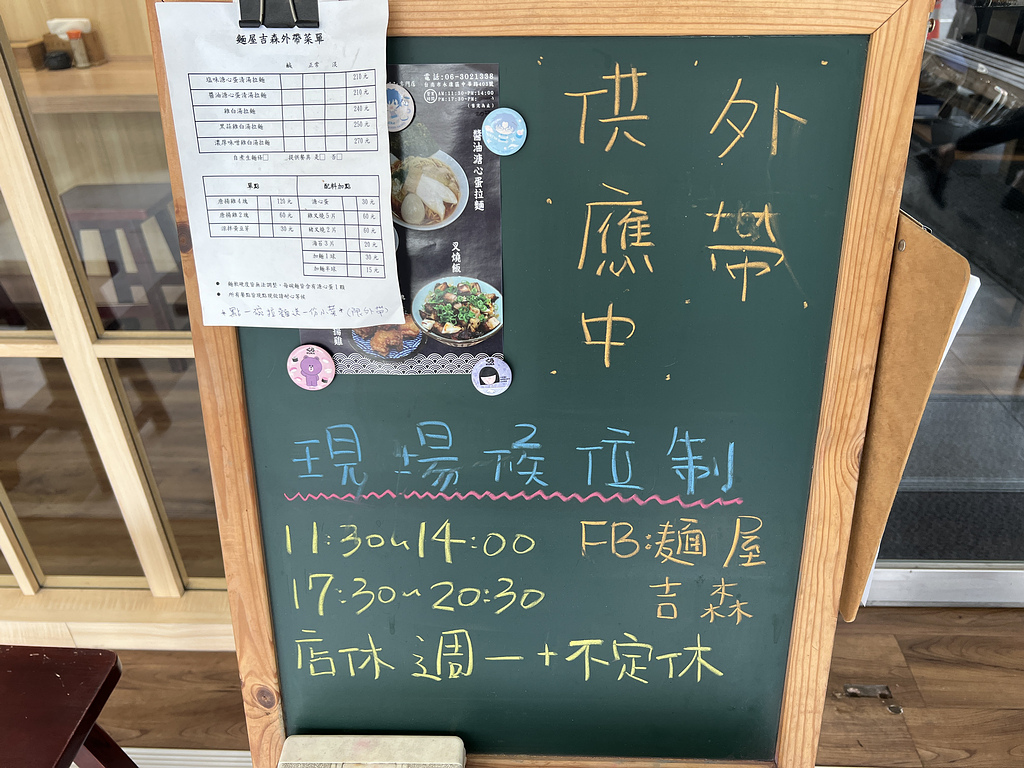 麵屋吉森外帶菜單
鹹 正常 淡
塩味溏心蛋清湯拉麵 210元
醬油溏心蛋清湯拉麵 210元
雞白湯拉麵 240元
黑蒜雞白湯拉麵 250元
濃厚味噌雞白湯拉麵 270元
自煮生麵條□ 提供餐具 是□ 否□
單點 配料加點
唐揚雞4塊 120元 溏心蛋 30元
唐揚雞2塊 60元 雞叉燒5片 60元
涼拌黃豆芽 30元 豬叉燒2片 60元
海苔3片 20元
加麵1球 30元
加麵半球 15元
電話:06-3021338
台南市永康區中華路403號
AM:11:30-PM:14:00
PM:17:30-PM:
醬油溏心蛋拉麵
叉燒飯
揚雞
外帶
供應中
現場候位制
11:30~14:00 FB:麵屋
17:30~20:30 吉森
店休 週一+不定休